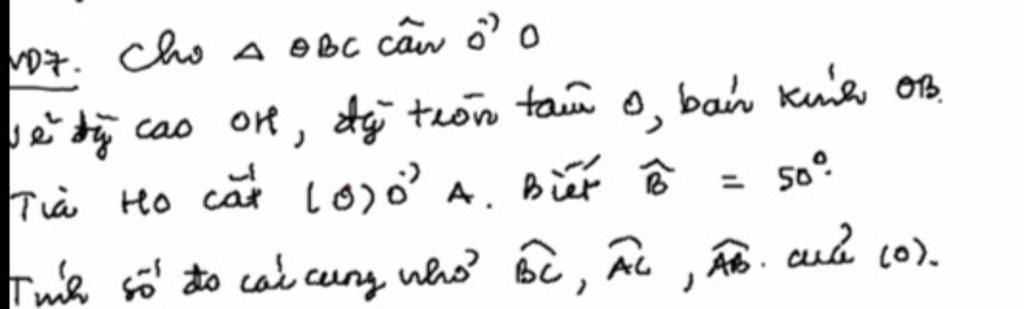 VD7. Cho △ OBC cân ở O
Vẽ đg cao OH, đg tròn tâm O, bán kính OB.
Tia HO cắt (O) ở A. Biết B̂ = 50°.
Tính số đo các cung nhỏ BC, AC, AB. của (O).